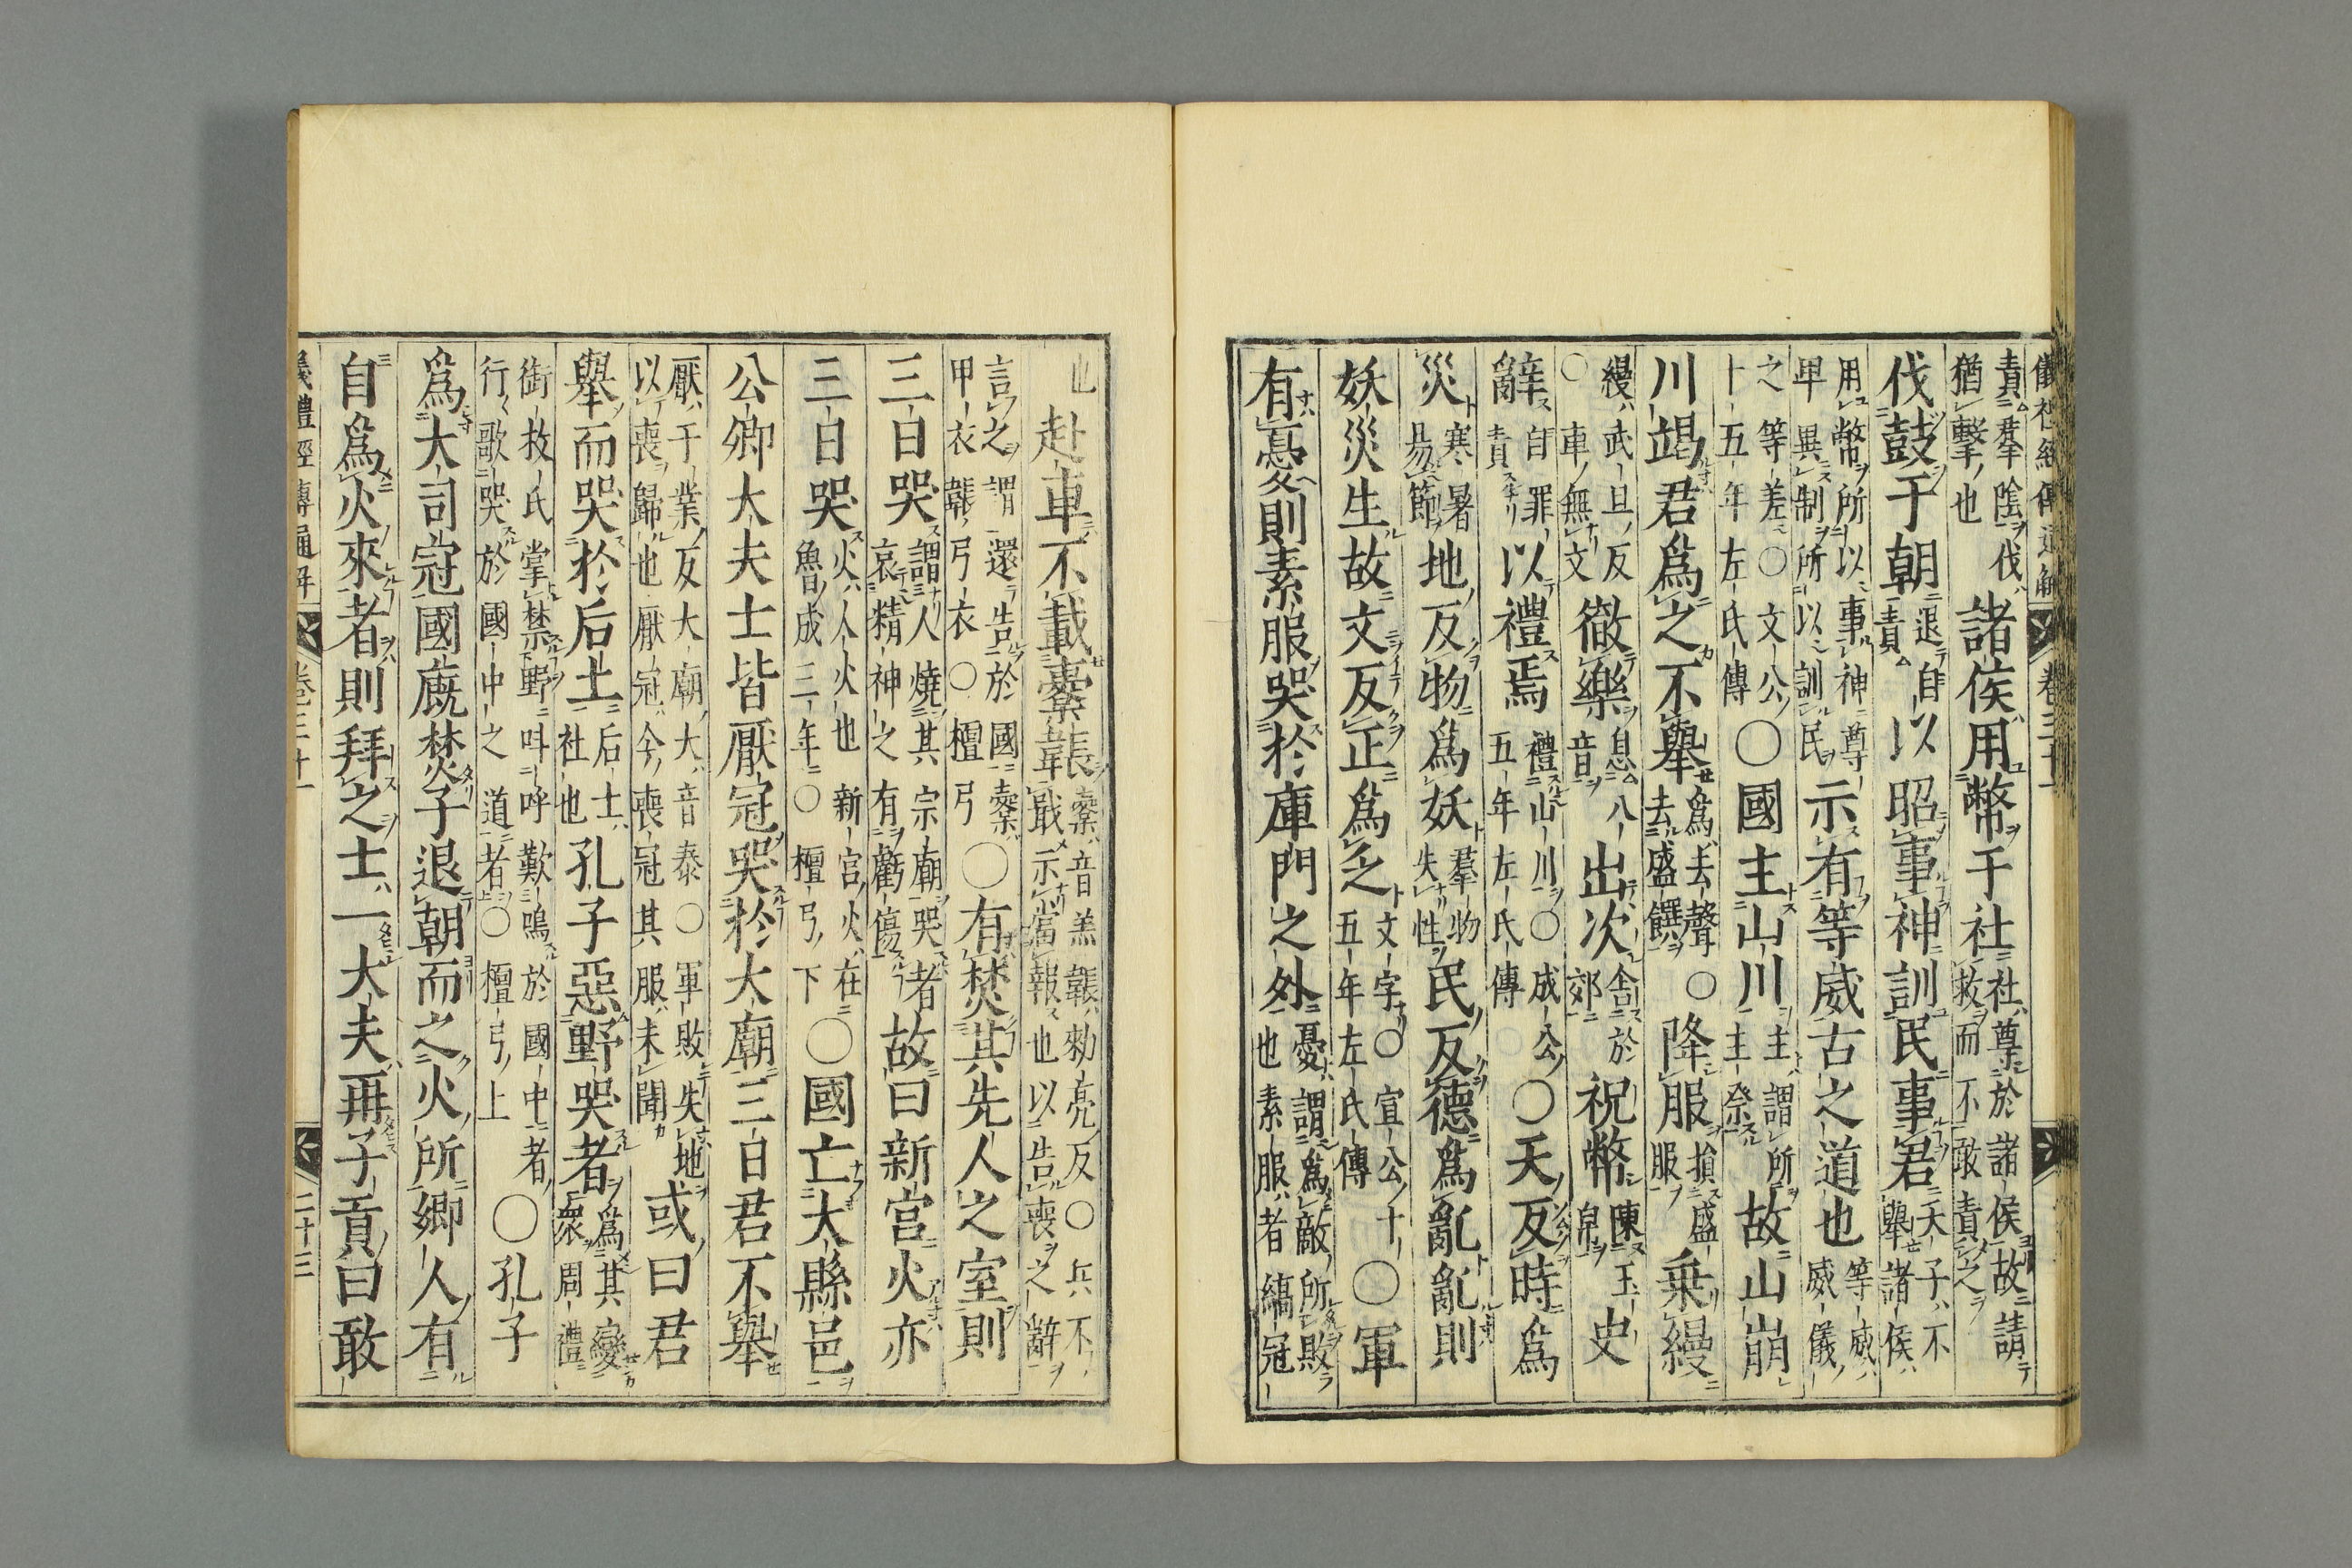 儀禮經傳通解 卷三十一
責羣陰伐猶擊也諸侯用幣于社社尊於諸侯故請救而不敢責之
伐鼓于朝退自責以昭事神訓民事君天子不舉諸侯
用幣所以事神尊卑異制所以訓民示有等威古之道也等威威儀
之等差○文公十五年左氏傳○國主山川主謂所主祭故山崩
川竭君爲之不舉爲去聲去盛饌○降服損盛服乗縵
縵武旦反○車無文徹樂息八音出次舎於郊祝幣陳玉帛史
辭自罪責以禮焉禮山川○成公五年左氏傳○天反時爲
災寒暑易節地反物爲妖羣物失性民反德爲亂亂則
妖災生故文反正爲乏文字○宣公十五年左氏傳○軍
有憂則素服哭於庫門之外憂謂爲敵所敗也素服者縞冠
也赴車不載櫜韔櫜音羔韔敕亮反○兵不戢示當報也以告喪之辭
言之謂還告於國櫜甲衣韔弓衣○檀弓○有焚其先人之室則
三日哭謂人燒其宗廟哭者哀精神之有虧傷故曰新宮火亦
三日哭火人火也新宮火在魯成三年○檀弓下○國亡大縣邑
公卿大夫士皆厭冠哭於大廟三日君不舉
厭于業反大廟大音泰○軍敗失地以喪歸也厭冠今喪冠其服未聞或曰君
舉而哭於后土后土社也孔子惡野哭者爲其變衆周禮
銜枚氏掌禁野叫呼歎鳴於國中者行歌哭於國中之道者○檀弓上○孔子
爲大司寇國廐焚子退朝而之火所鄉人有
自爲火來者則拜之士一大夫再子貢曰敢
儀禮經傳通解 卷三十一 二十三